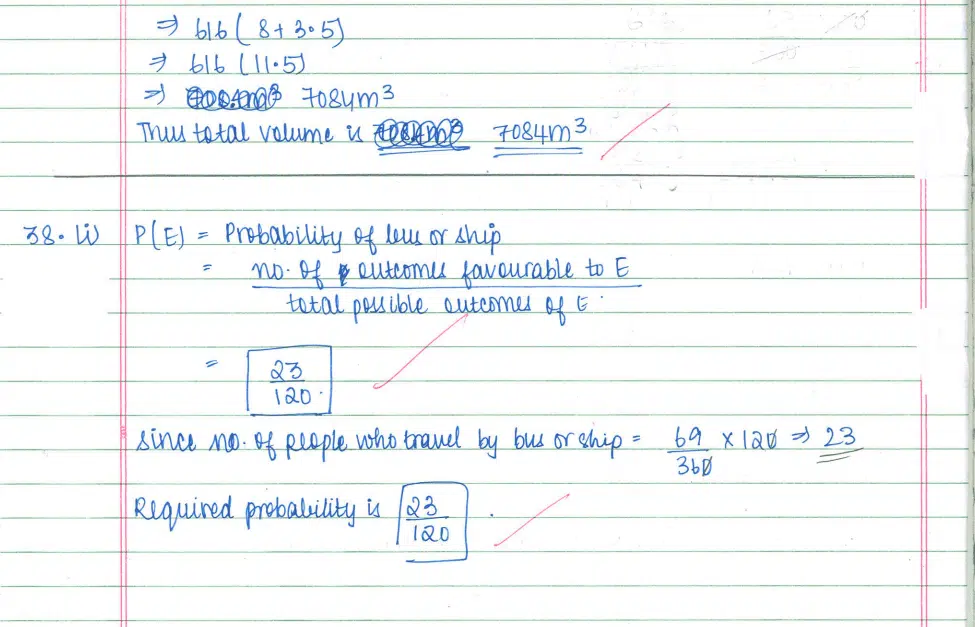 ⇒ 616 ( 8 + 3.5)
⇒ 616 (11.5)
⇒ 7084m³
Thus total volume is 7084m³
38. (i) P(E) = Probability of bus or ship
= no. of outcomes favourable to E
total possible outcomes of E.
= 23
120.
Since no. of people who travel by bus or ship = 69/360 × 120 ⇒ 23
Required probability is 23/120 .